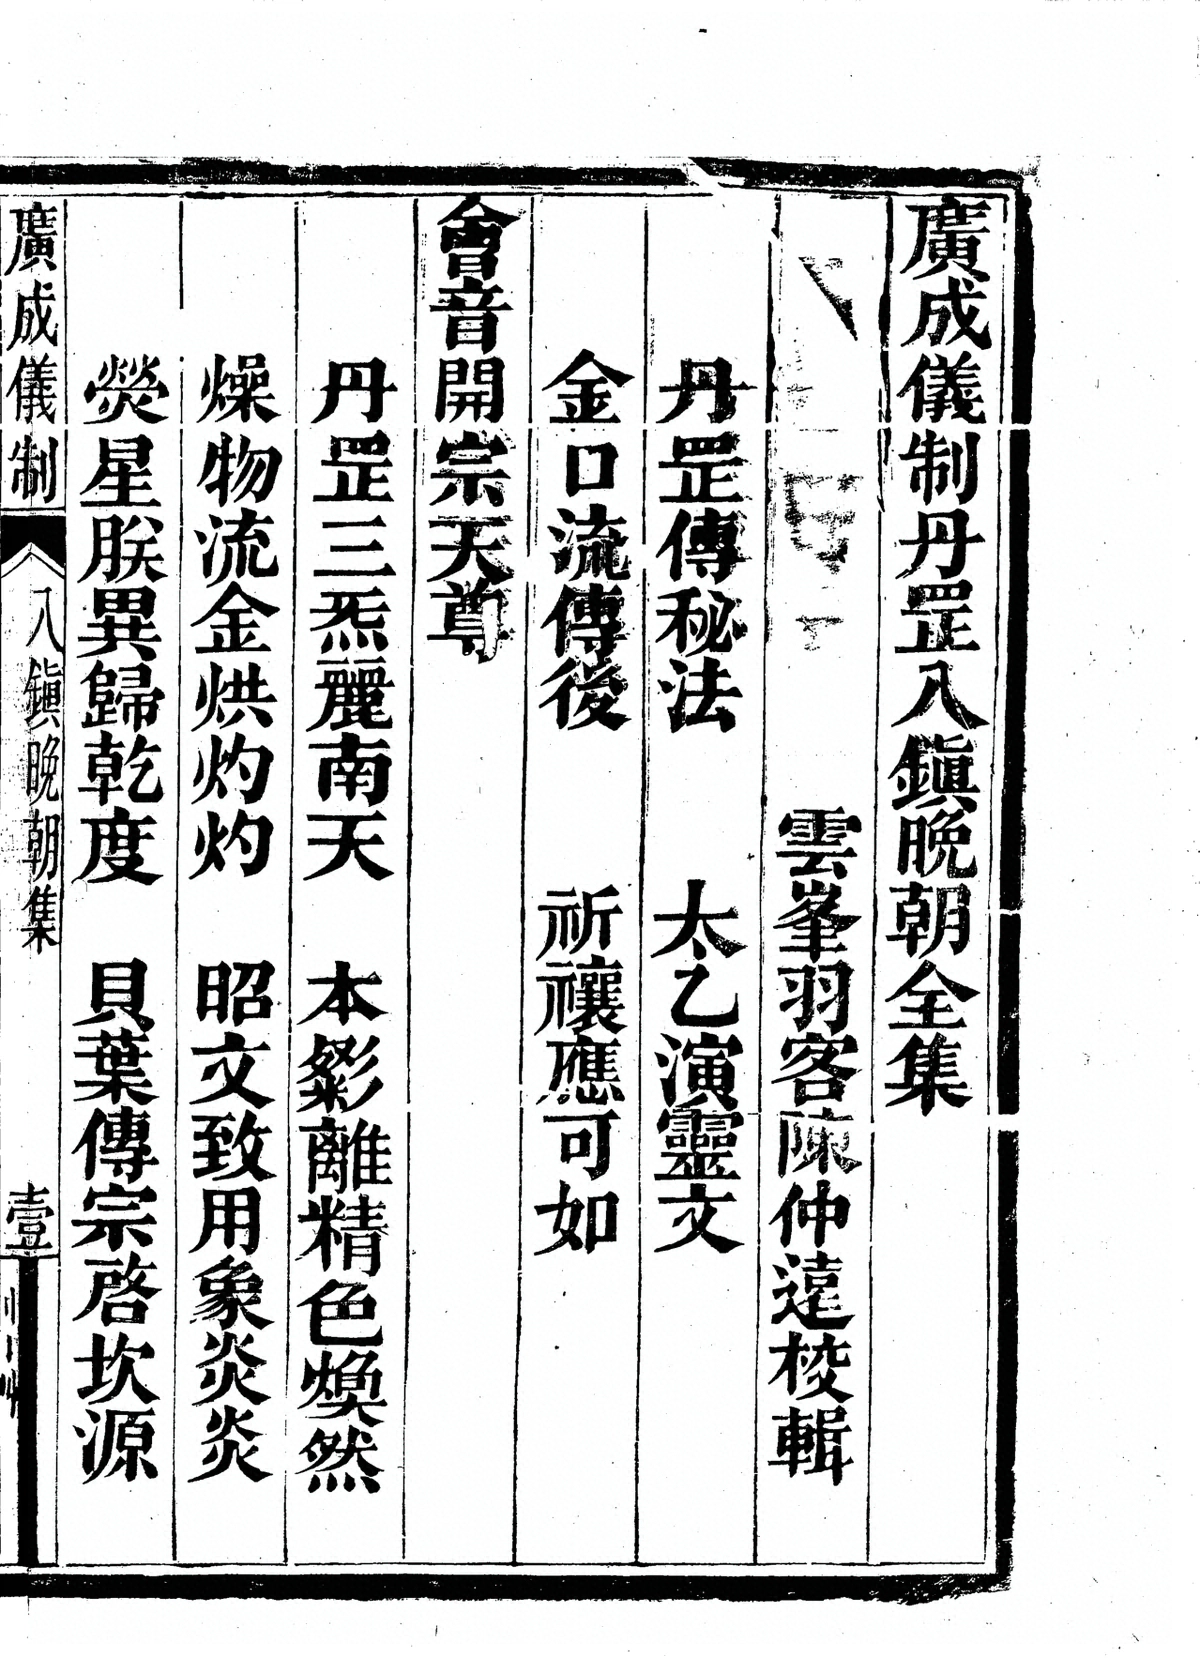 廣成儀制丹罡八鎮晚朝全集
雲峯羽客陳仲遠校輯
丹罡傳秘法　太乙演靈文
金口流傳後　祈禳應可如
會音開宗天尊
丹罡三炁麗南天　本粲離精色煥然
燥物流金烘灼灼　昭文致用象炎炎
熒星朕異歸乾度　貝葉傳宗啓坎源
廣成儀制　八鎮晚朝集　壹